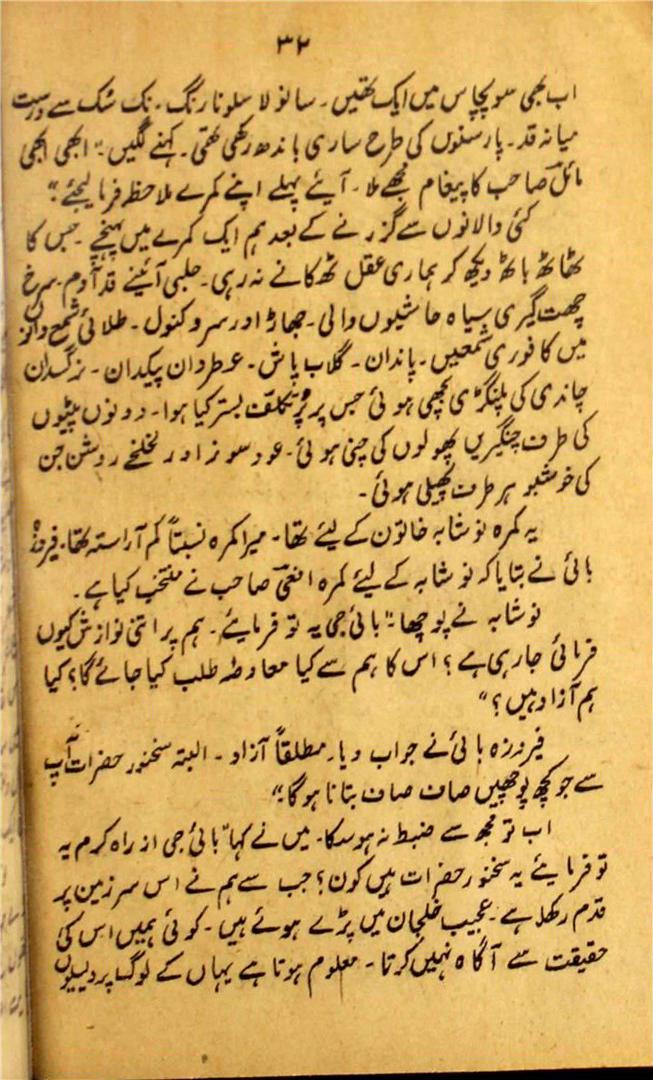 ۳۲
اب بھی سو پچاس میں ایک تھیں۔ سانولا سلونا رنگ۔ نک شک سے درست
میانہ قد۔ پارسنوں کی طرح ساری باندھ رکھی تھی۔ کہنے لگیں۔ "ابھی ابھی
مائلؔ صاحب کا پیغام مجھے ملا۔ آیئے پہلے اپنے کمرے ملاحظہ فرما لیجئے۔"
کئی دالانوں سے گزرنے کے بعد ہم ایک کمرے میں پہنچے۔ جس کا
ٹھاٹھ باٹھ دیکھ کر ہماری عقل ٹھکانے نہ رہی۔ حلبی آئینے قد آدم۔ سرخ
چھت گیری سیاہ حاشیوں والی۔ جھاڑ اور سرو کنول۔ طلائی شمع دانوں
میں کافوری شمعیں۔ پاندان۔ گلاب پاش۔ عطردان پیکدان۔ نرگسدان
چاندی کی پلنگڑی بچھی ہوئی جس پر پُرتکلف بستر کیا ہوا۔ دونوں پٹیوں
کی طرف چنگیریں پھولوں کی چنی ہوئی۔ عود سوز اور لخلخے روشن جن
کی خوشبو ہر طرف پھیلی ہوئی۔
یہ کمرہ نوشابہ خاتون کے لیئے تھا۔ میرا کمرہ نسبتاً کم آراستہ تھا۔ فیروزہ
بائی نے بتایا کہ نوشابہ کے لیئے کمرہ افعیؔ صاحب نے منتخب کیا ہے۔
نوشابہ نے پوچھا۔ "بائی جی یہ تو فرمایئے۔ ہم پر اتنی نوازش کیوں
فرمائی جا رہی ہے؟ اس کا ہم سے کیا معاوضہ طلب کیا جائے گا؟ کیا
ہم آزاد ہیں؟"
فیروزہ بائی نے جواب دیا۔ مطلقاً آزاد۔ البتہ سخنور حضرات آپ
سے جو کچھ پوچھیں صاف صاف بتانا ہوگا۔"
اب تو مجھ سے ضبط نہ ہو سکا۔ میں نے کہا "بائی جی از راہ کرم یہ
تو فرمایئے یہ سخنور حضرات ہیں کون؟ جب سے ہم نے اس سرزمین پر
قدم رکھا ہے۔ عجیب خلجان میں پڑے ہوئے ہیں۔ کوئی ہمیں اس کی
حقیقت سے آگاہ نہیں کرتا۔ معلوم ہوتا ہے یہاں کے لوگ پردیسیوں